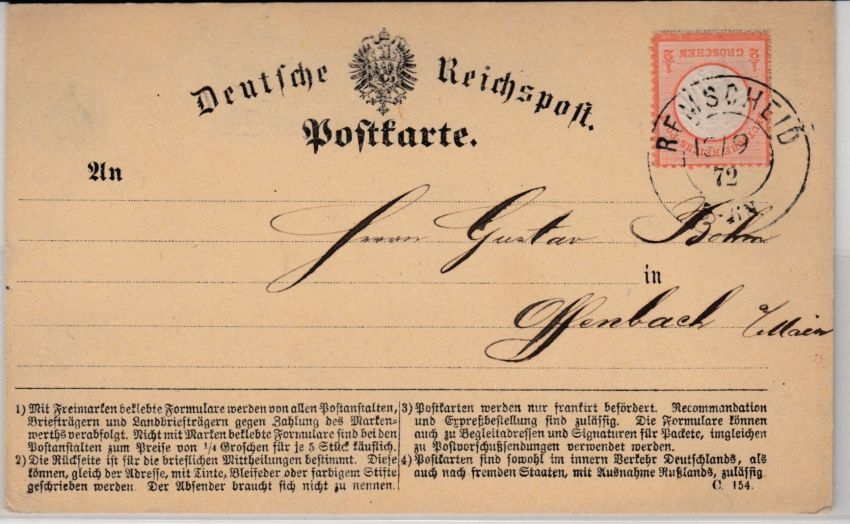 Deutsche Reichspost.
Postkarte.
1/2 GROSCHEN 1/2
REMSCHEID
72
An
Herrn Gustav Böhm
in
Offenbach a/Main
1) Mit Freimarken beklebte Formulare werden von allen Postanstalten,
Briefträgern und Landbriefträgern gegen Zahlung des Marken-
werths verabfolgt. Nicht mit Marken beklebte Formulare sind bei den
Postanstalten zum Preise von 1/4 Groschen für je 5 Stück käuflich.
2) Die Rückseite ist für die brieflichen Mittheilungen bestimmt. Diese
können, gleich der Adresse, mit Tinte, Bleifeder oder farbigem Stifte
geschrieben werden. Der Absender braucht sich nicht zu nennen.
3) Postkarten werden nur frankirt befördert. Recommandation
und Expreßbestellung sind zulässig. Die Formulare können
auch zu Begleitadressen und Signaturen für Packete, imgleichen
zu Postvorschußsendungen verwendet werden.
4) Postkarten sind sowohl im innern Verkehr Deutschlands, als
auch nach fremden Staaten, mit Ausnahme Rußlands, zulässig.
C. 154.